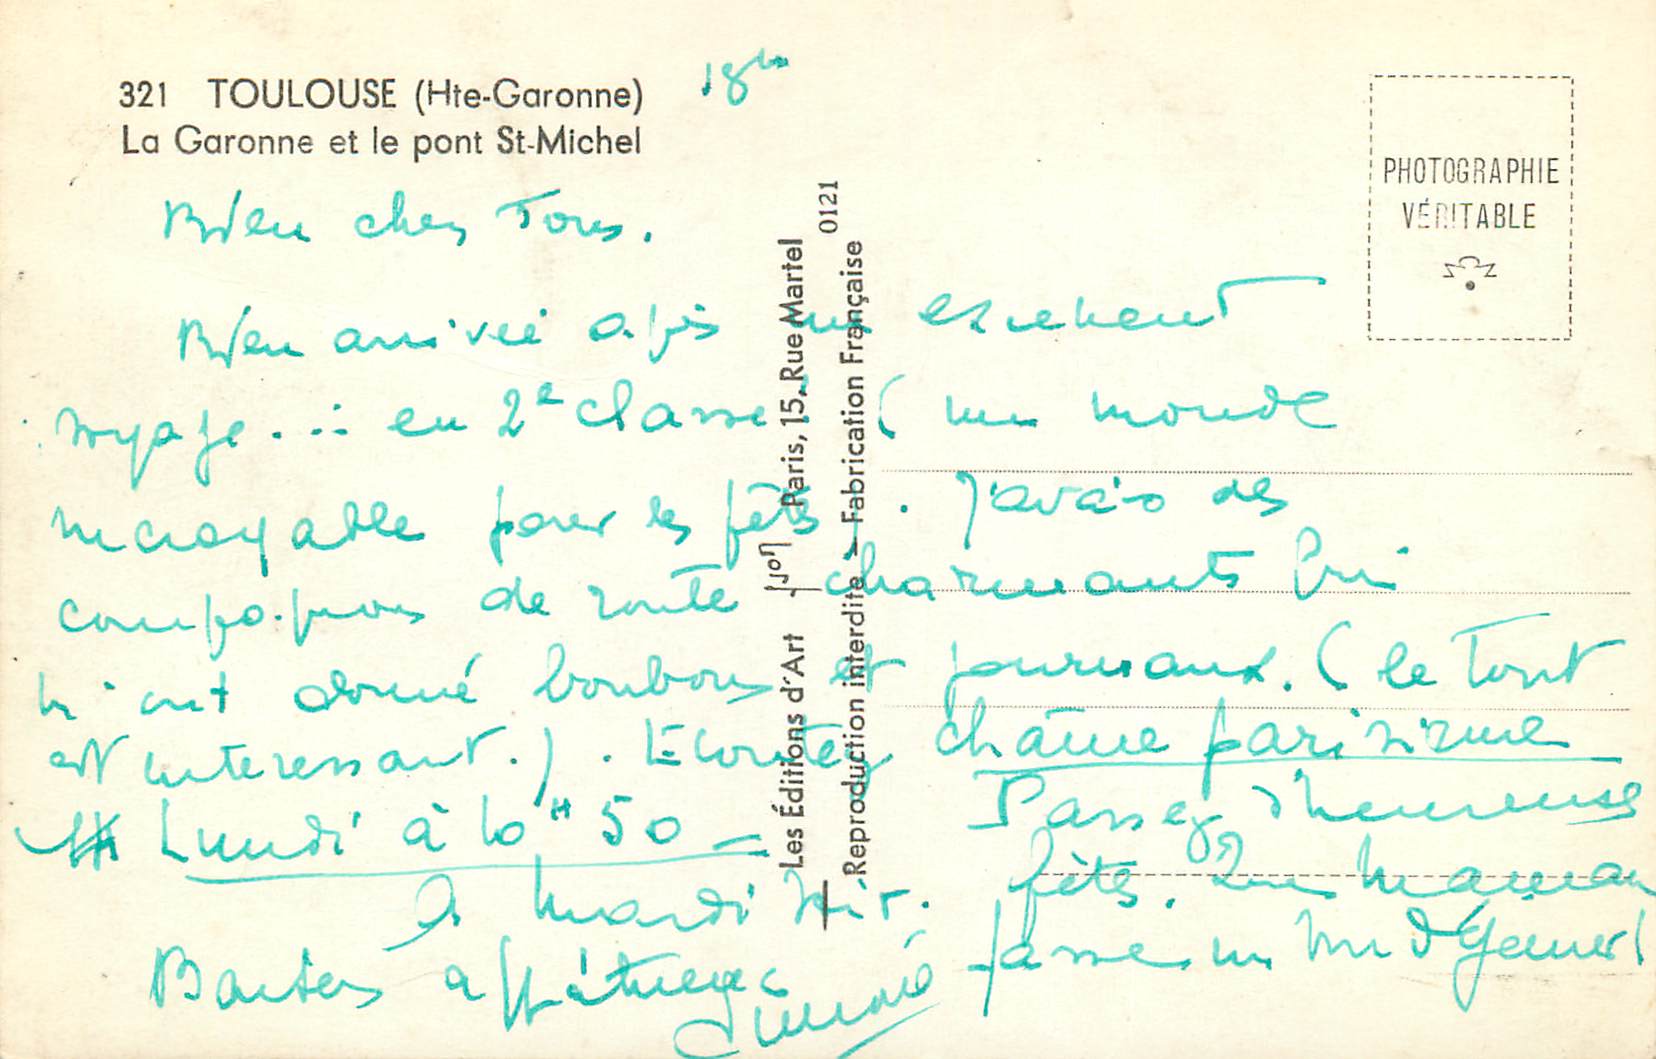 321 TOULOUSE (Hte-Garonne)
La Garonne et le pont St-Michel
18h
Bien chers Tous.
Bien arrivée après un excellent
voyage... en 2e classe ! ( un monde
incroyable pour les fêtes ). J'avais des
compagnons de route charmants qui
m'ont donné bonbons et journaux. ( le tout
est interessant. ) . Ecoutez chaîne parisienne
Lundi à 10H 50 —
Passez d'heureuses
fêtes. Que Maman
fasse un
A mardi soir.
Baisers affectueux
PHOTOGRAPHIE
VÉRITABLE
Les Éditions d'Art Yvon Paris, 15, Rue Martel
Reproduction interdite — Fabrication Française
0121